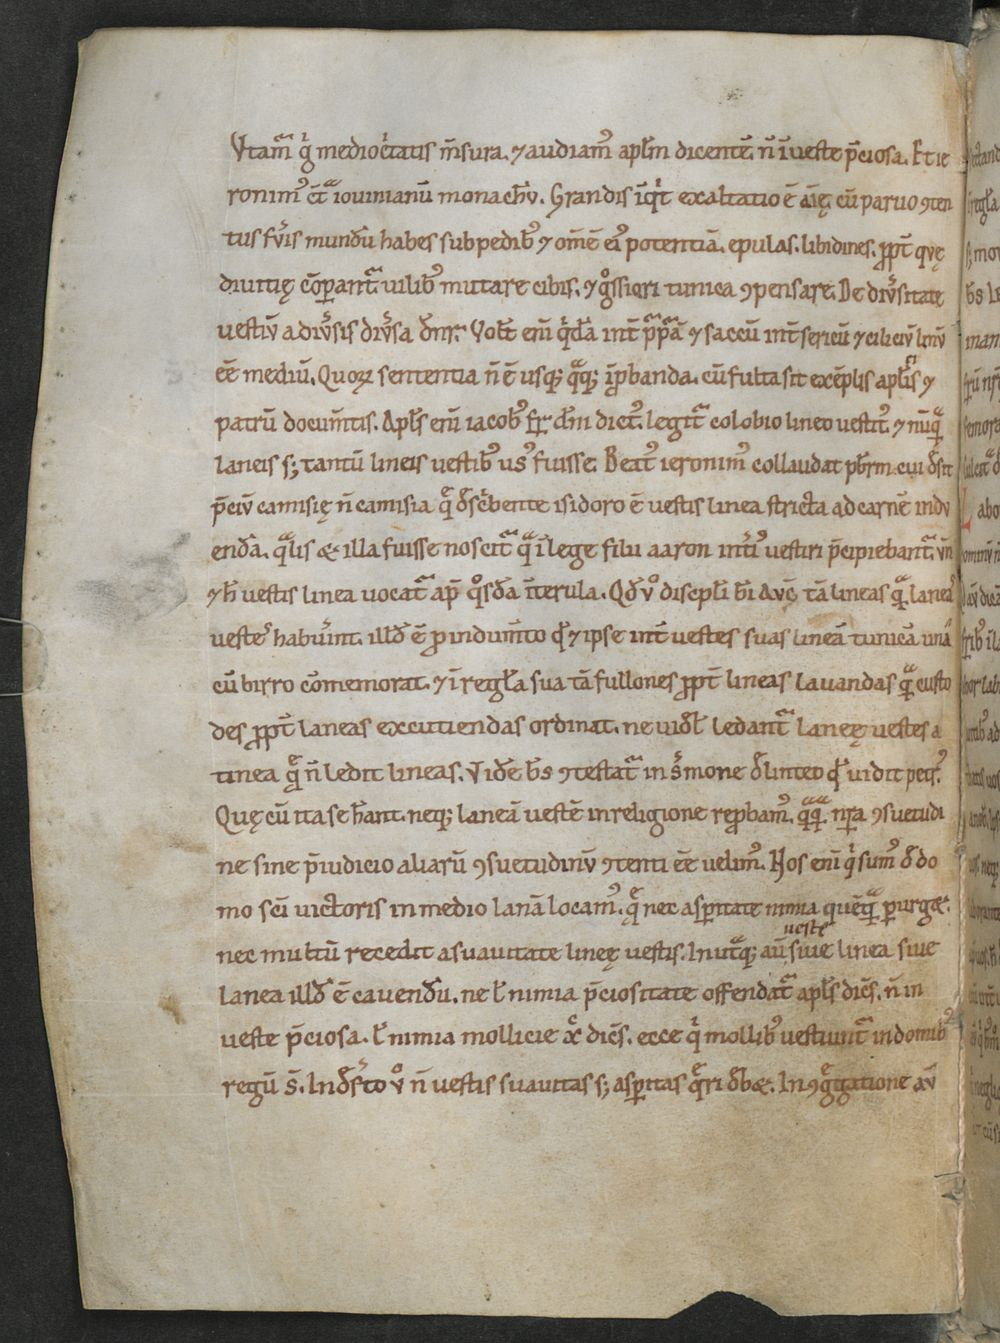 Vtam̄ gͥ medioc̾tatis m̄sura. ⁊ audiamꝰ apl̄m dicentē. n̄ ī ueste p̄ciosa. Et ie
ronimꝰ ct̄ᵃ iouinianū monachū. Grandis īqͥt exaltatio ē aīę cū paruo ꝯten
tus fūis mundū habes sub pedibꝰ ⁊ om̄ē eiꝰ potentiā. epulas. libidines. ꝓpt̄ quę
diuitię cōparant̄ uilibꝰ mutare cibis. ⁊ gͦssiori tunica ꝯpensare. De diu̾sitate
uestiū a diu̾sis diu̾sa dn̄r. Volt̄ eni̅ qͥdā int̄ p̄pā ⁊ saccū int̄ sericū ⁊ ciliciū linū
eē̄ mediū. Quoꝝ sententia n̄ ē usqꝫ qᵃqꝫ īp̱banda. cū fulta sit exēplis apl̄is ⁊
patrū documtis. Apl̄s eni̅ iacobꝰ fr̄ dn̄i dict̄. legit̄ colobio lineo uestitꝰ. ⁊ nūqᵃ
laneis sꝫ tantū lineis uestibꝰ usꝰ fuisse. Beatꝰ ieronimꝰ collaudat pb̄rm cui dēsit
p̄ciū camisię n̄ camisia qᵃ desc̾bente isidoro ē uestis linea stricta ad carnē indu
enda. qᵃlis & illa fuisse noscit̄ qᵃ ī lege filii aaron int̾iꝰ uestiri p̄cipiebant̄. vn̄
⁊ h̄ uestis linea uocat̄ ap̄ qͦsdā īterula. Qd̄ ṽ discipl̄i bi̅ Avg̅ tā lineas qᵃ laneaˢ
uesteˢ habuīnt. illd̄ ē ꝓ indum̄to qd̄ ⁊ ipse int̄ uestes suas lineā tunicā unā
cū birro cōmemorat. ⁊ ī regl̄a sua tā fullones ꝓpt̄ lineas lauandas qᵃ custo
des ꝓpt̄ laneas excutiendas ordinat. ne uidl̄ ledant̄ laneę uestes a
tinea qᵃ n̄ ledit lineas. Vide bs̄ ꝯtestat̄ in s̾mone d̄ linteo qd̄ uidit pet̾.
Quę cū ita se hn̄t. neqꝫ laneā uestē in religione rep̱bamꝰ. qᵃqᵃ nr̄a ꝯsuetudi
ne sine p̄iudicio aliarū ꝯsuetudinū ꝯtenti eē̄ uelimꝰ. Nos eni̅ qͥ sumꝰ d̄ do
mo sc̄i uictoris in medio lanā locamꝰ. qᵃ nec asp̱itate nimia quēqᵃ p̱urg&.
nec multū recedit a suauitate lineę uestis. In utᵃqꝫ aū ueste siue linea siue
lanea illd̄ ē cauendū. ne l̄ nimia p̄ciositate offendat̄ apl̄s dicēs. n̄ in
ueste p̄ciosa. l̄ nimia mollicie xc̄ dicēs. ecce qͥ mollibꝰ uestiunt̄ in domibꝰ
regū s̄. In deserto ṽ n̄ uestis suauitas sꝫ asp̱itas qᵃri deb&. In ꝯgᵃgatione aū